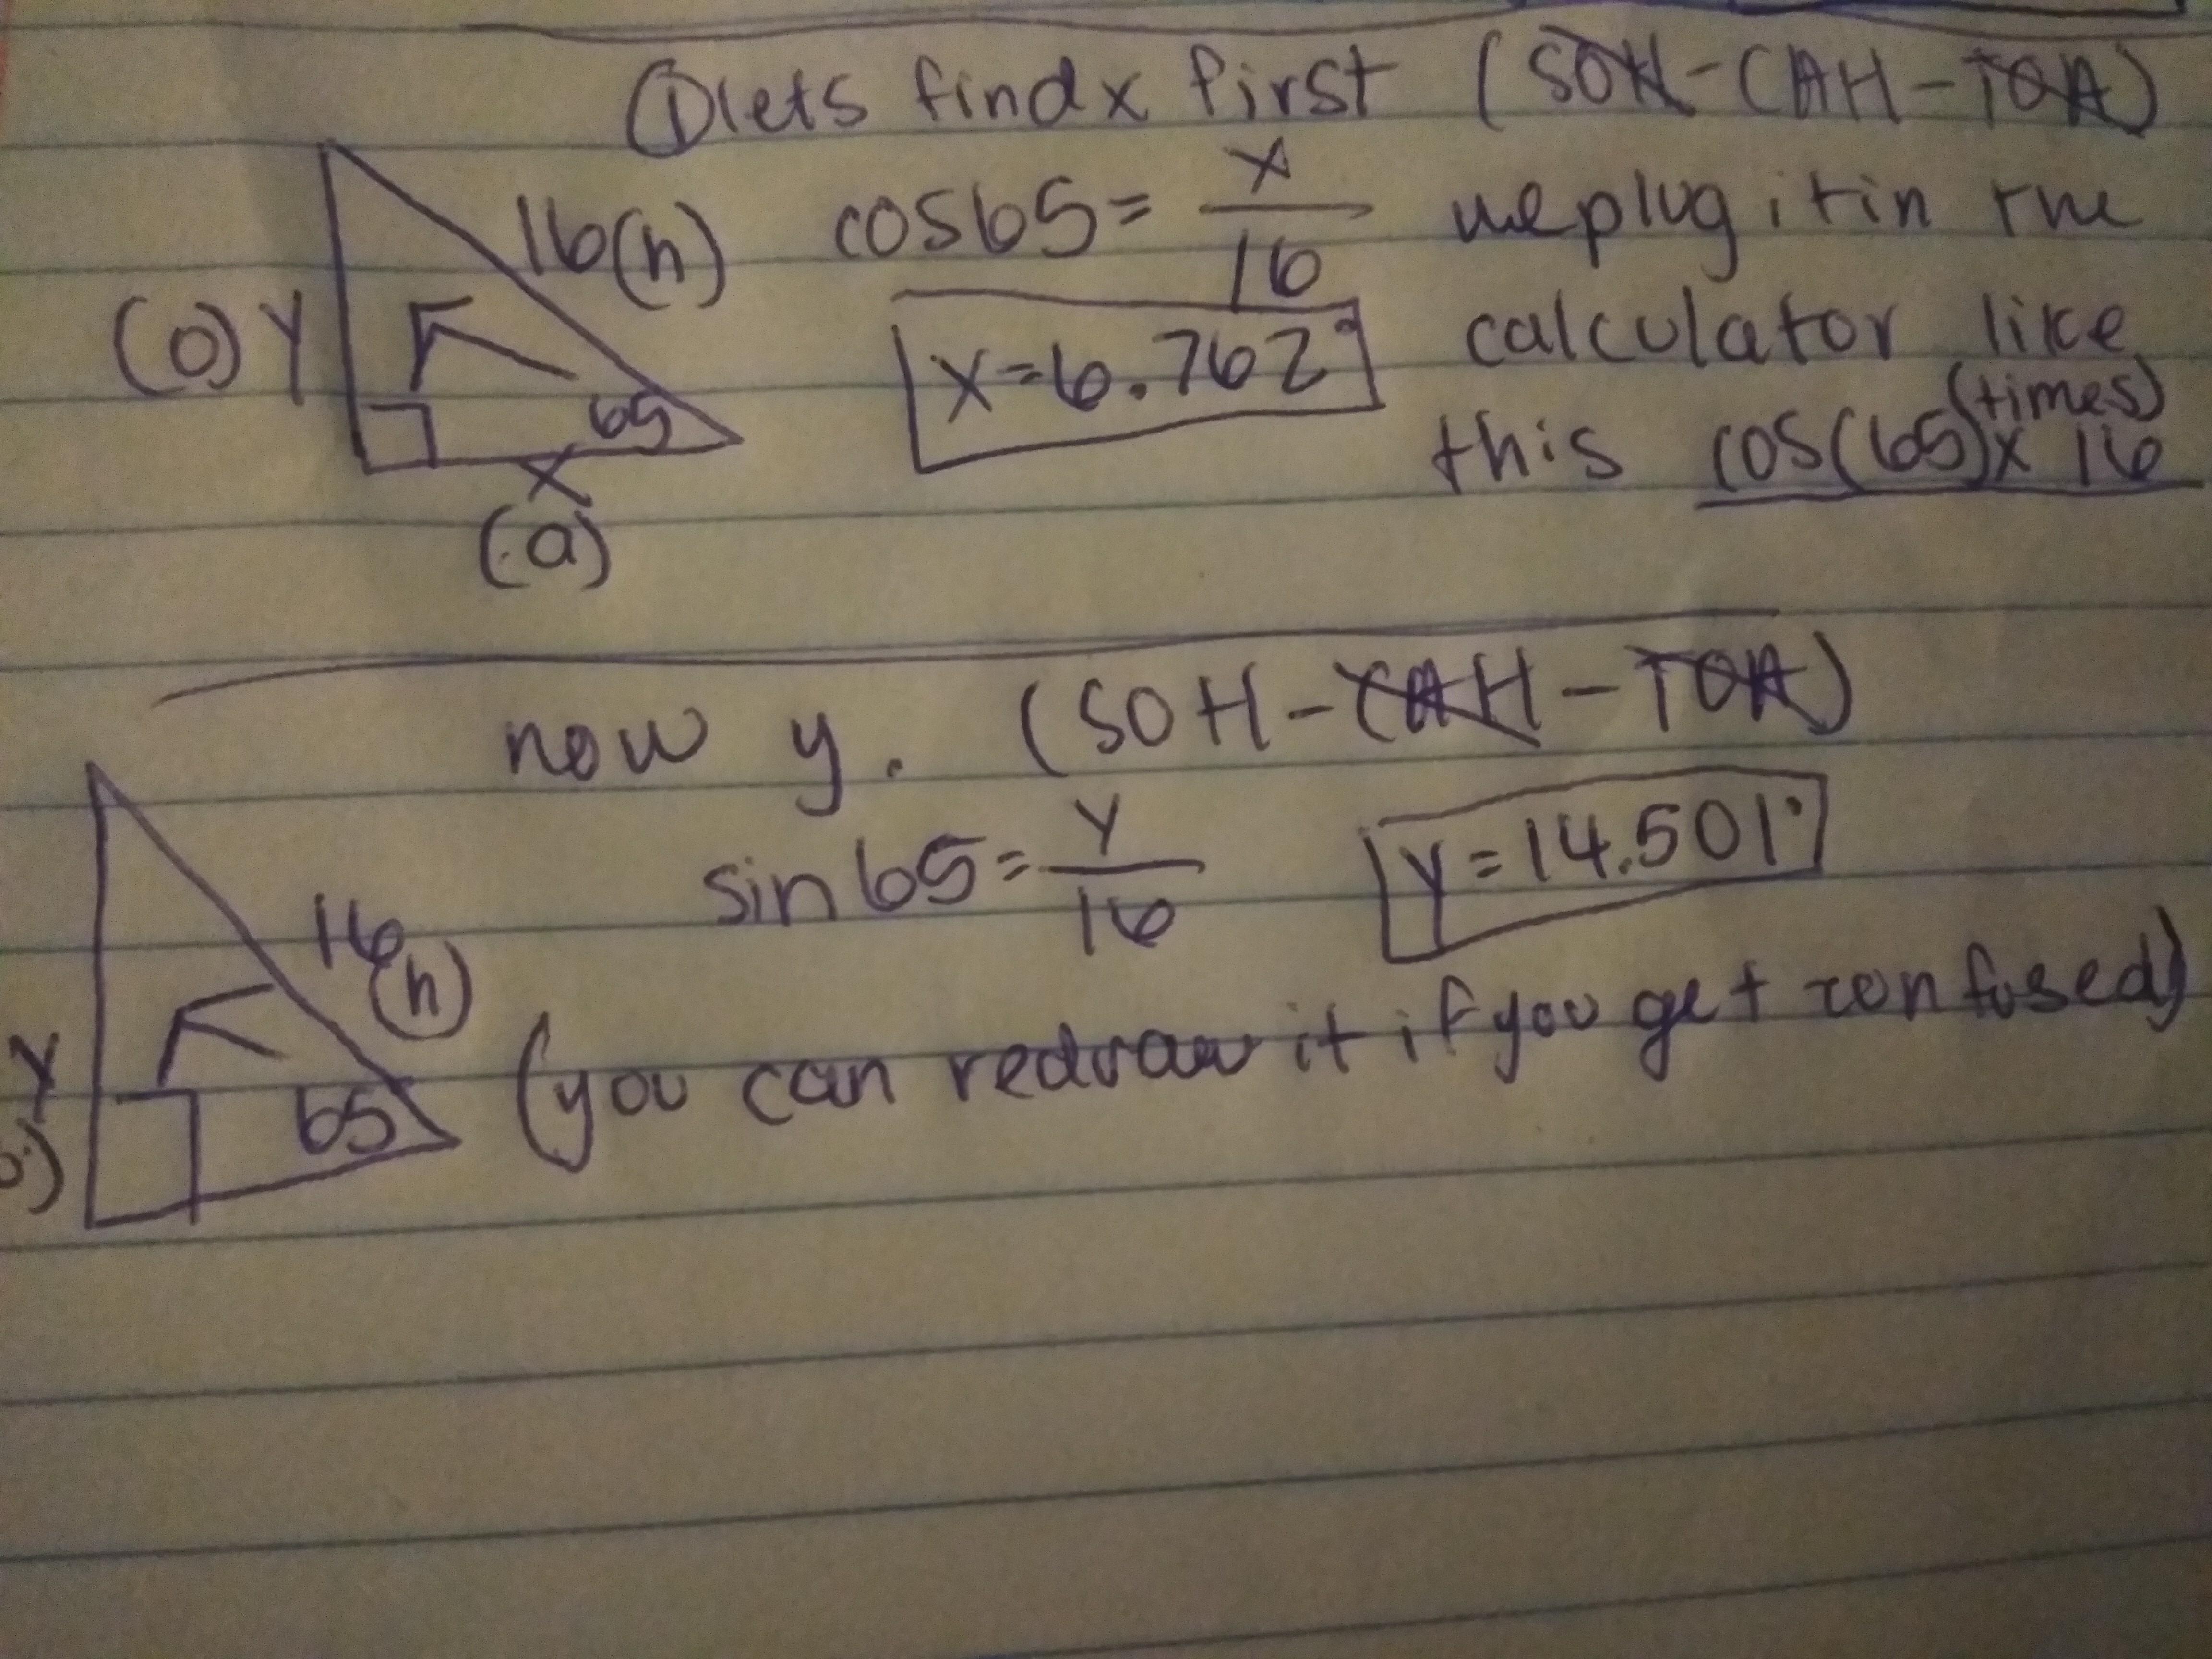 ① lets find x first (SOH-CAH-TOA)
16(h)
cos65= x/16
we plug it in the
(o) y
x=6.762°
calculator like
65
(times)
this cos(65)x 16
x
(a)
now y. (SOH-CAH-TOA)
sin65= y/16
y=14.501°
16
(h)
y
65
(you can redraw it if you get confused)